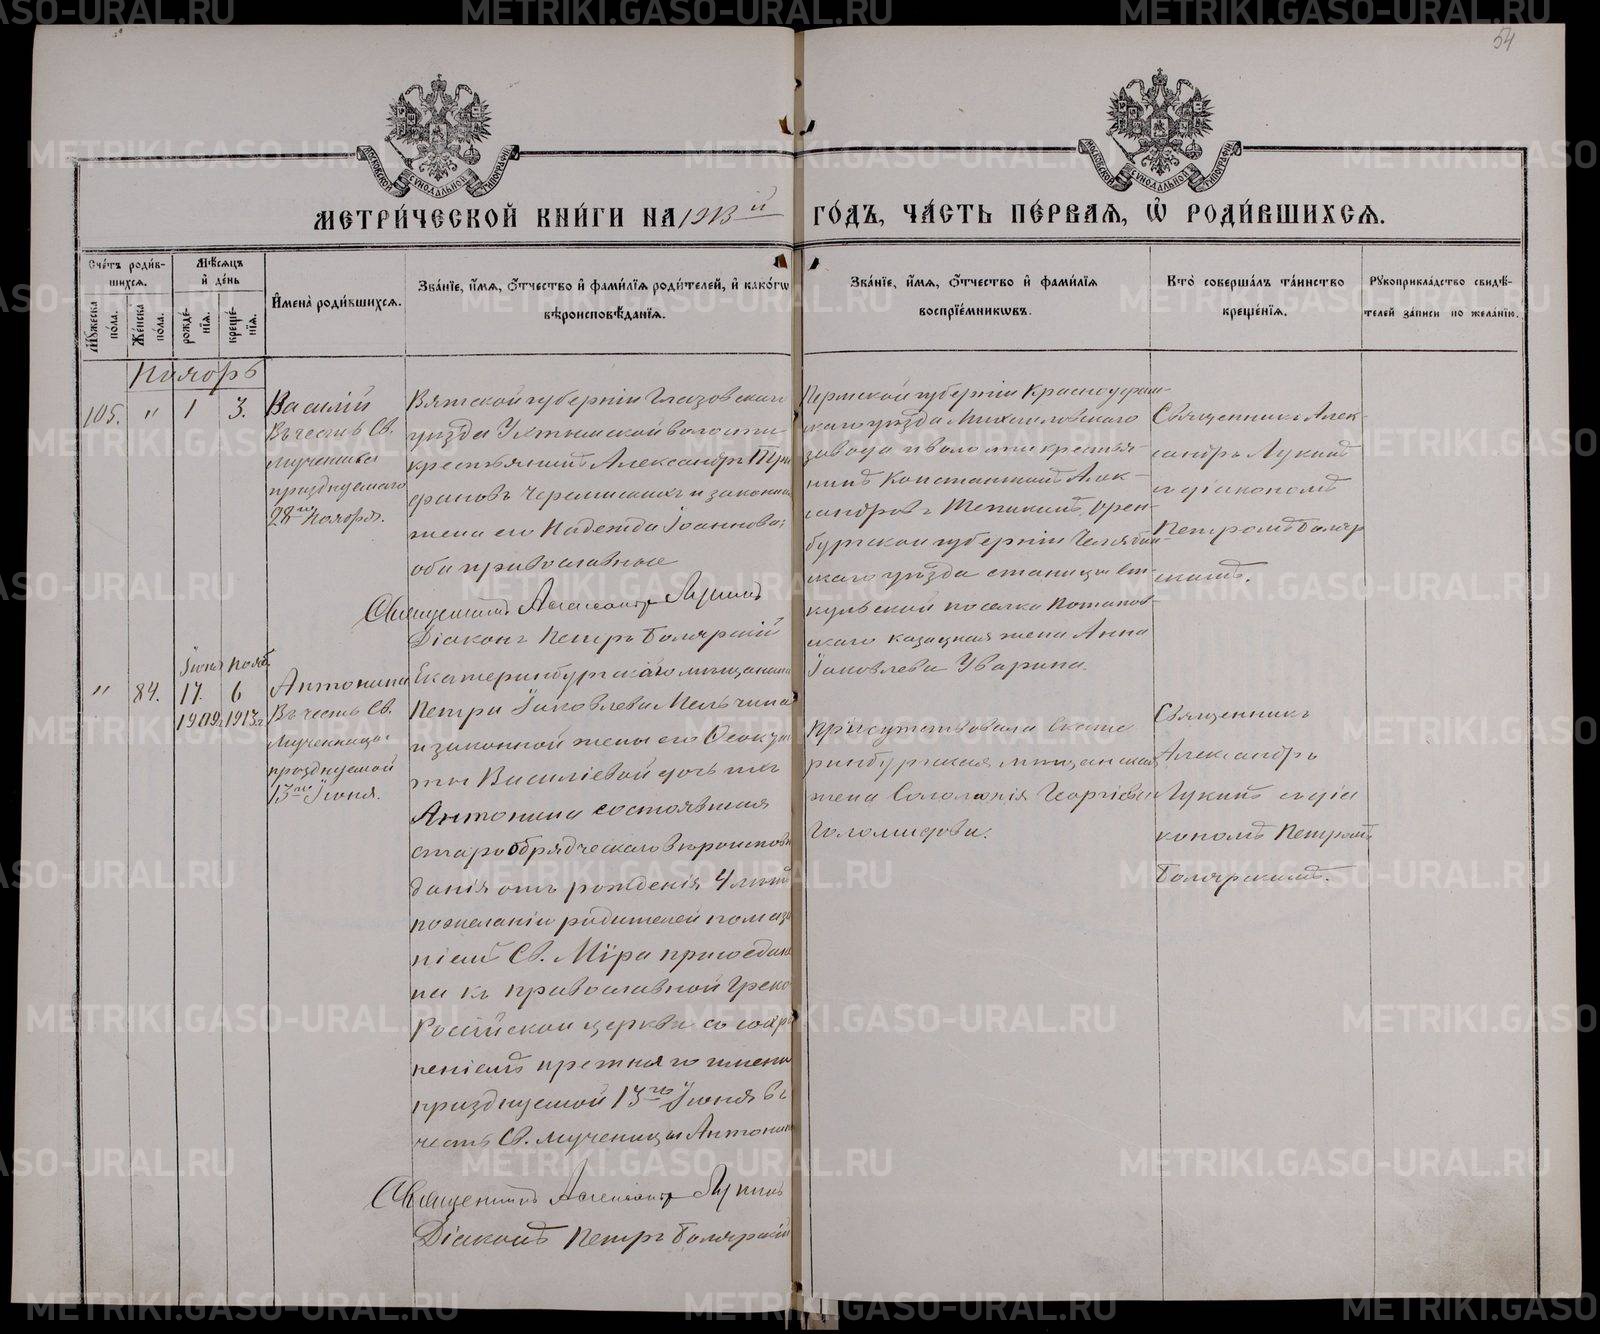 54
МОСКОВСКОЙ СѴНОДАЛЬНОЙ ТИПОГРАФІИ
МОСКОВСКОЙ СѴНОДАЛЬНОЙ ТИПОГРАФІИ
МЕТРИ́ЧЕСКОЙ КНИ́ГИ НА 1913й
ГО́ДЪ, ЧА́СТЬ ПЕ́РВАЯ, Ѡ҆ РОДИ́ВШИХСЯ.
Сче́тъ роди́в-
шихся.
Мꙋ́жеска
по́ла.
Же́нска
по́ла.
Мѣ́сяцъ
и҆ де́нь
рожде́-
нїя.
креще́-
нїя.
И҆мена̀ роди́вшихся.
Зва́нїе, и҆́мя, ѻ҆́тчество и҆ фами́лїя роди́телей, и҆ како́гѡ
вѣроисповѣ́данїя.
Зва́нїе, и҆́мя, ѻ҆́тчество и҆ фами́лїя
воспрїе́мникѡвъ.
Кто̀ соверша́лъ та́инство
креще́нїя.
Рꙋкоприкла́дство свидѣ́-
телей за́писи по жела́нїю.
Ноябрь
105.
"
1
3.
Василій
Въ честь Св.
мученика
празднуемаго
28го Ноября.
Вятской губерніи Глазовскаго
уѣзда Ухтымской волости
крестьянинъ Александръ Три
фановъ Черемискихъ и законная
жена его Надежда Іоаннова;
оба православные
Священникъ Александръ Лукинъ
Діаконъ Петръ Боляркій
Пермской губерніи Красноуфим-
скаго уѣзда Михайловскаго
завода и волости крестья-
нинъ Константинъ Алек-
сандровъ Оренбургской губерніи Челябин-
скаго уѣзда станицы Ет-
кульской поселка Потапов-
скаго казацкая жена Анна
Іаковлева Уварина.
Священникъ Алек-
сандръ Лукинъ
съ діакономъ
Петромъ Боляр
скимъ.
"
84.
Іюня
17.
1909г.
Нояб.
6
1913г.
Антонина
Въ честь Св.
Мученицы
празднуемой
13го Іюня.
Екатеринбургскаго мѣщанина
Петра Іаковлева Мельчина
и законной жены его Ѳеокти
ты Василіевой дочь ихъ
Антонина состоявшая
старообрядческаго вѣроисповѣ
данія отъ рожденія 4 лѣтъ
по желанію родителей помаза
ніемъ Св. Мѵра присоедине
на къ православной Греко
Россійской церкви съ нарѣ
ченіемъ прежняго имени
празднуемой 13го Іюня въ
честь Св. мученицы Антонины
Священникъ Александръ Лукинъ
Діаконъ Петръ Боляркій
Присутствовала Екате
ринбургская мѣщанская
жена Соломонія Георгіева
Голомидова.
Священникъ
Александръ
Лукинъ съ діа
кономъ Петромъ
Болярскимъ.
METRIKI.GASO-URAL.RU